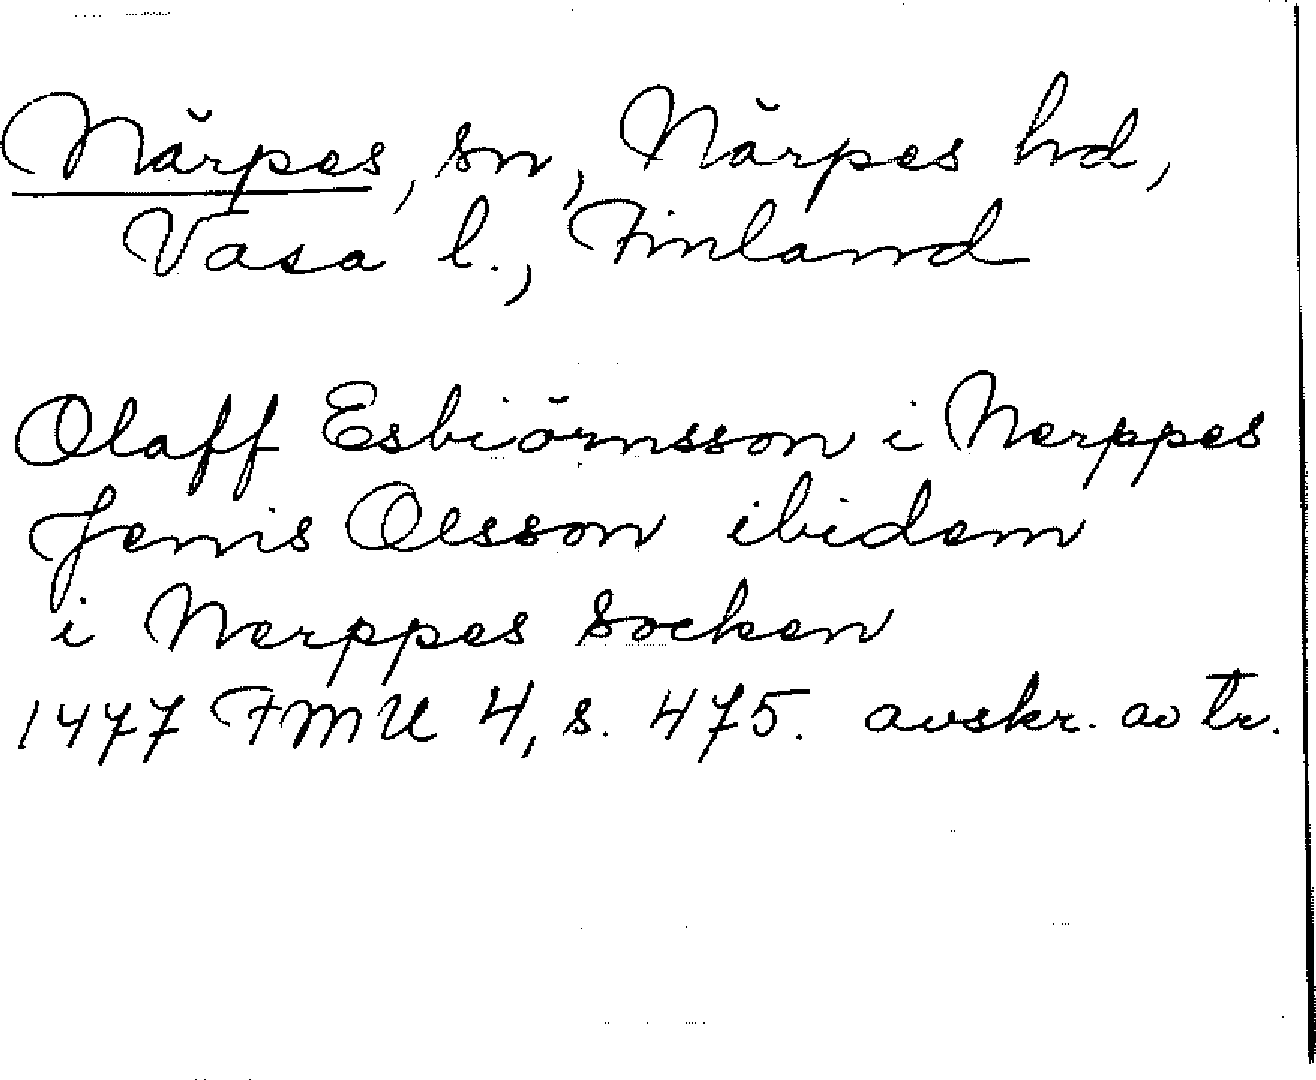 Närpes, sn, Närpes hd,
Vasa l., Finland
Olaff Esbiörnsson i Nerppes
Jenis Olsson ibidem
i Nerppes Socken
1477 FMU 4, s. 475. avskr. av tr.